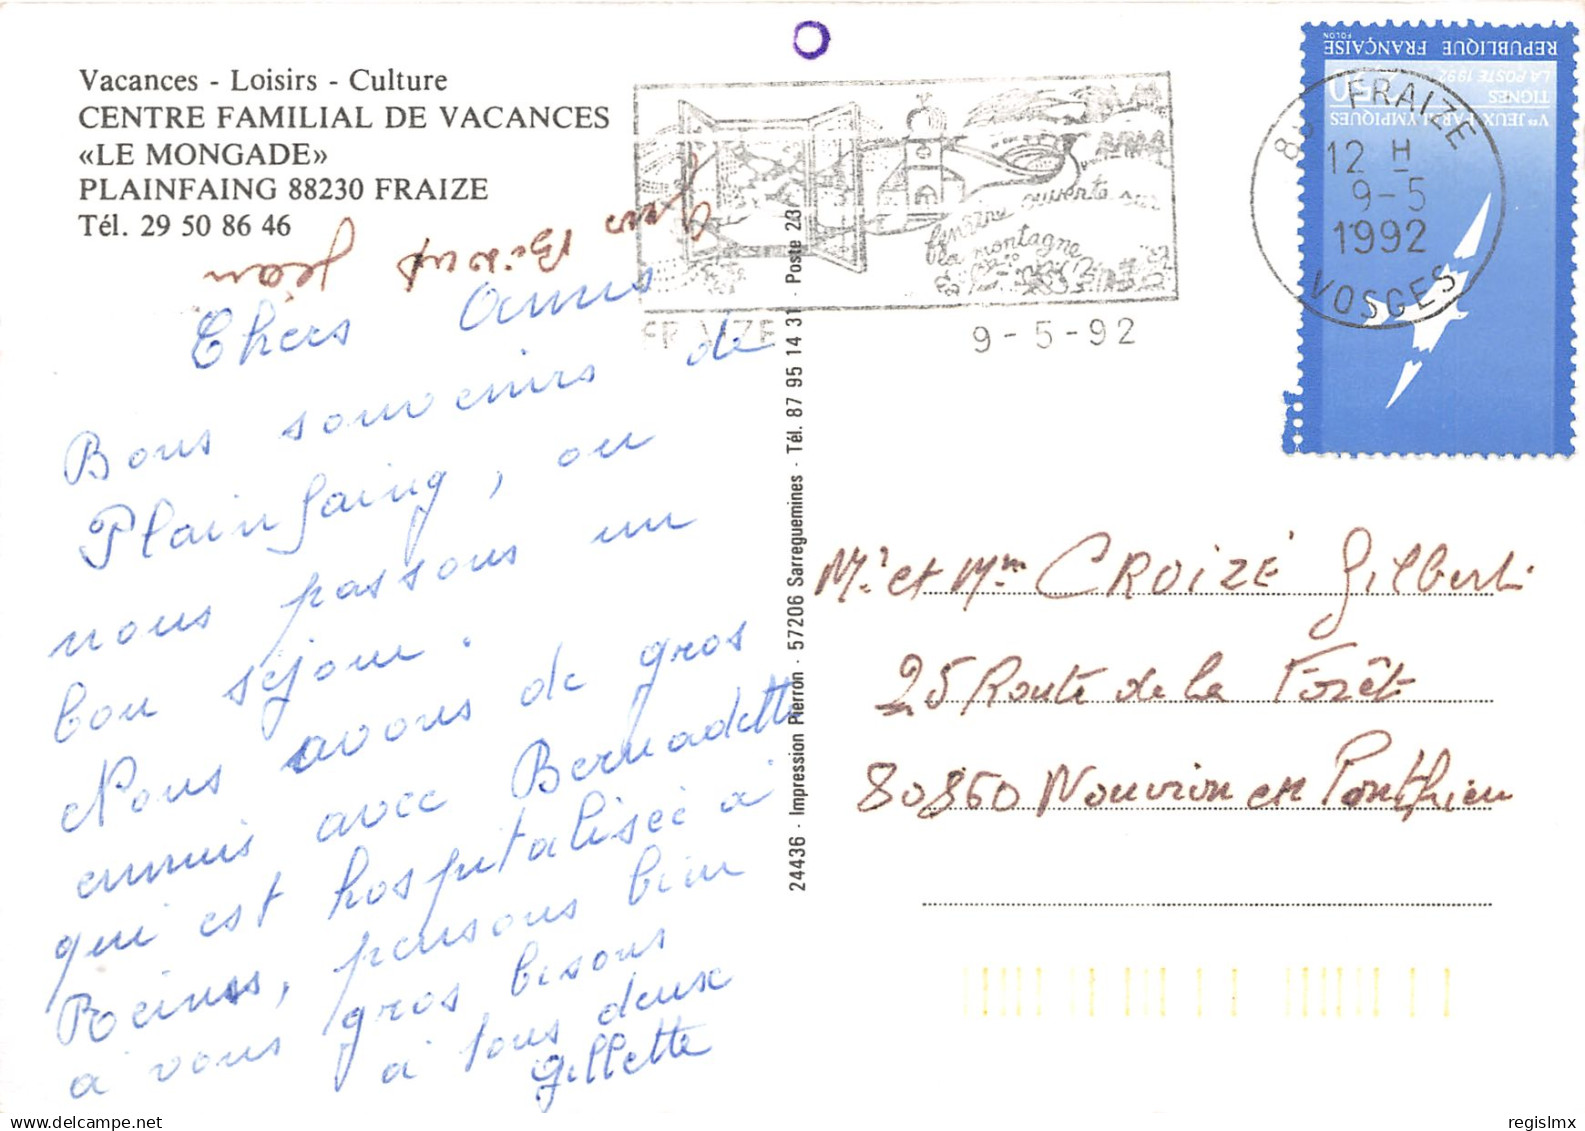 Vacances - Loisirs - Culture
CENTRE FAMILIAL DE VACANCES
«LE MONGADE»
PLAINFAING 88230 FRAIZE
Tél. 29 50 86 46
Gros Bisous Jean
Chers Amis
Bons souvenirs de
Plainfaing, ou
nous passons un
bon séjour.
Nous avons de gros
ennuis avec Bernadette
qui est hospitalisée à
Reims, pensons bien
à vous gros bisous
à tous deux
Gillette
24436 - Impression Pierron - 57206 Sarreguemines - Tél. 87 95 14 31 - Poste 23
fenêtre ouverte sur
la montagne
FRAIZE
9-5-92
REPUBLIQUE FRANÇAISE
FOLON
LA POSTE 1992
2,50
TIGNES
Ves JEUX PARALYMPIQUES
FRAIZE
12 H
9-5
1992
VOSGES
Mr et Mme CROIZÉ Gilbert
25 Route de la Forêt
80860 Nouvion en Ponthieu
regislmx